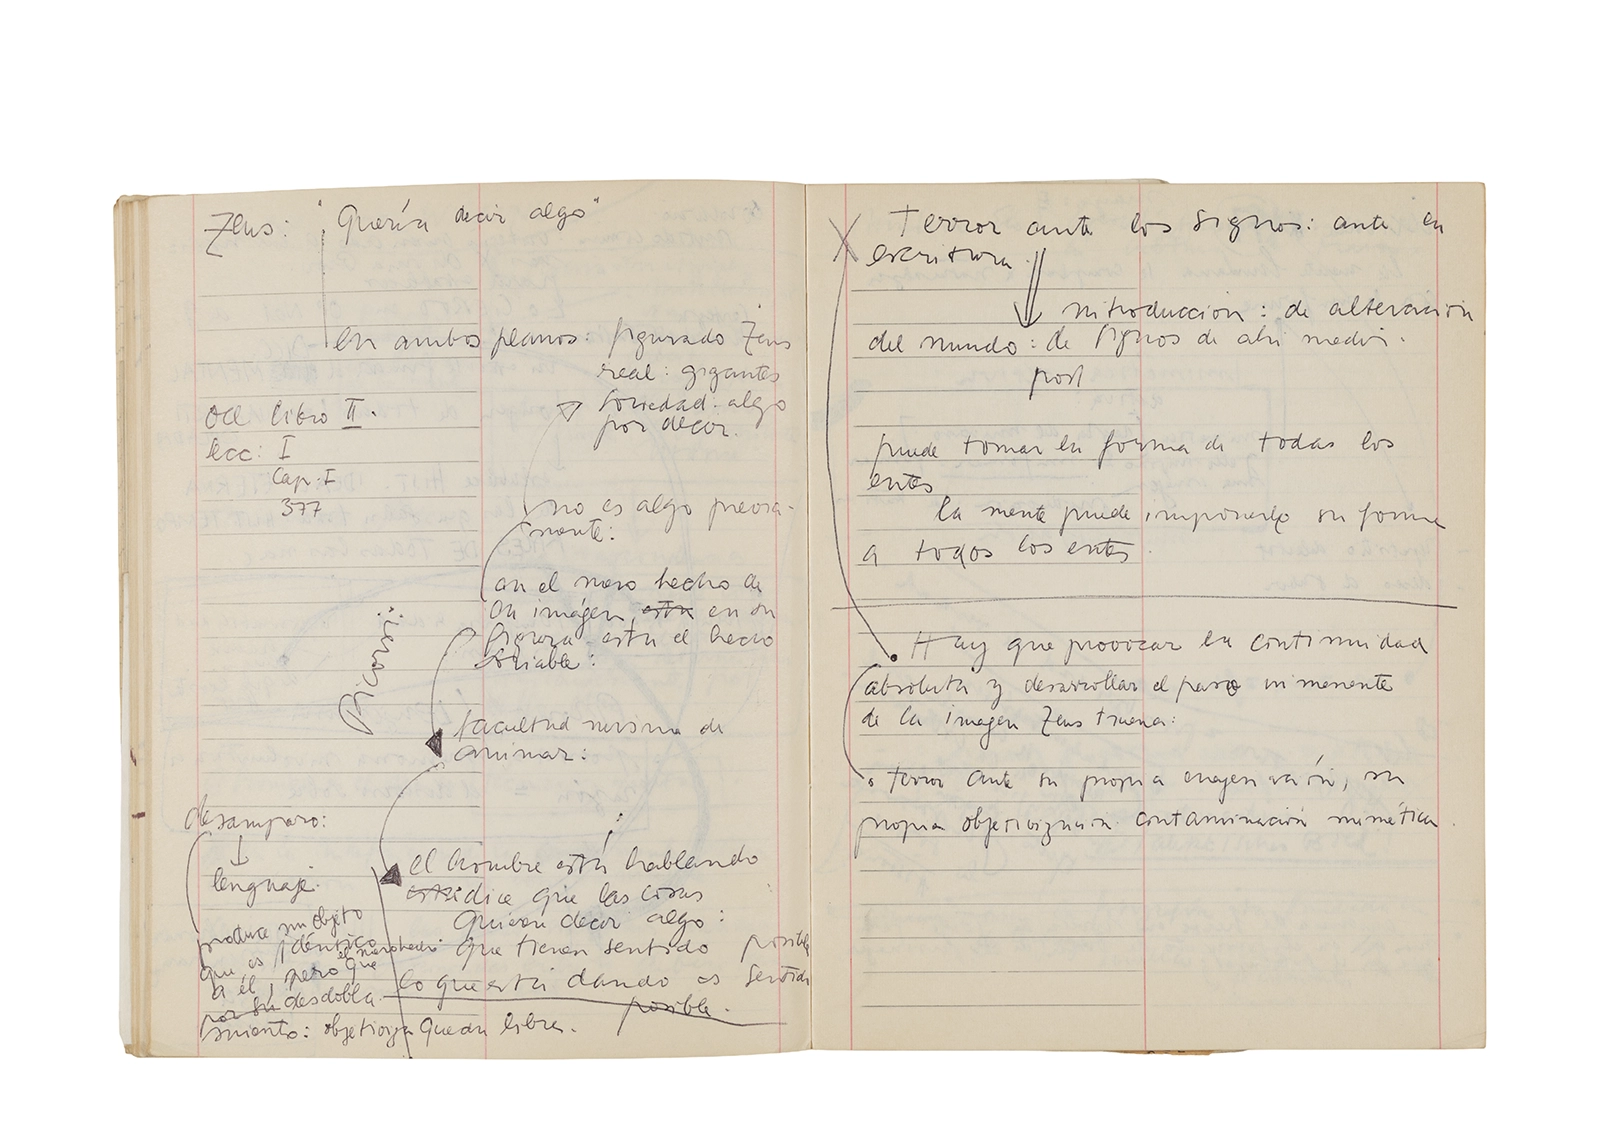 Zeus: "Quería decir algo"
en ambos planos: figurado Zeus
real: gigantes
sociedad. algo
por decir.
del libro II.
lec: I
Cap: I
377
no es algo previa-
mente:
en el mero hecho de
su imágen, está en su
figura está el hecho
sociable:
Bicorsi:
facultad misma de
animar:
desamparo:
lenguaje.
el hombre está hablando
está dice que las cosas
Quieren decir algo:
que tienen sentido posible
lo que está dando es sentido
posible.
produce un objeto
que es idéntico
a él, pero que el mero hecho
por su desdobla-
miento: objetiviza Quedar libre.
X Terror ante los signos: ante la
escritura.
introducción: de alteración
del mundo: de signos de ahí
post
puede tomar la forma de todas los
entes
la mente puede imponerle su forma
a todos los entes.
Hay que provocar la continuidad
absoluta y desarrollar el paso inmanente
de la imagen Zeus truena:
terror ante su propia enajenación, su
propia objetivización. contaminación mimética.